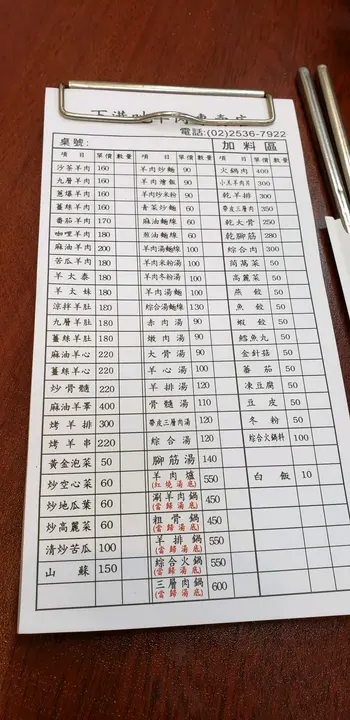 下港吔羊肉專賣店
電話:(02)2536-7922
桌號: 加料區
項目 單價 數量 項目 單價 數量 項目 單價 數量
沙茶羊肉 160 羊肉炒麵 90 火鍋肉 400
九層羊肉 160 羊肉燴飯 90 小羔羊肉片 300
蔥爆羊肉 160 羊肉炒米粉 90 乾羊排 300
薑絲羊肉 160 青菜炒麵 60 帶皮三層肉 350
番茄羊肉 170 麻油麵線 60 乾大骨 250
咖哩羊肉 180 煎油麵線 60 乾腳筋 280
麻油羊肉 200 羊肉湯麵線 100 綜合肉 300
苦瓜羊肉 180 羊肉米粉湯 90 茼萵菜 50
羊太泰 180 羊肉冬粉湯 90 高麗菜 50
羊太妹 180 羊肉湯麵 90 燕餃 50
涼拌羊肚 180 綜合湯麵線 130 魚餃 50
九層羊肚 180 赤肉湯 90 蝦餃 50
薑絲羊肚 180 燉肉湯 90 鱈魚丸 50
麻油羊心 220 大骨湯 90 金針菇 50
薑絲羊心 220 羊心湯 100 蕃茄 50
炒骨髓 220 羊排湯 120 凍豆腐 50
麻油羊睪 400 骨髓湯 110 豆皮 50
烤羊排 300 帶皮三層湯 120 冬粉 50
烤羊串 220 綜合湯 120 綜合火鍋料 100
黃金泡菜 50 腳筋湯 140
炒空心菜 60 羊肉爐 (紅燒湯底) 550 白飯 10
炒地瓜葉 60 涮羊肉鍋 (當歸湯底) 450
炒高麗菜 60 粗骨鍋 (當歸湯底) 450
清炒苦瓜 100 羊排鍋 (當歸湯底) 550
山蘇 150 綜合火鍋 (當歸湯底) 550
三層肉鍋 (當歸湯底) 600